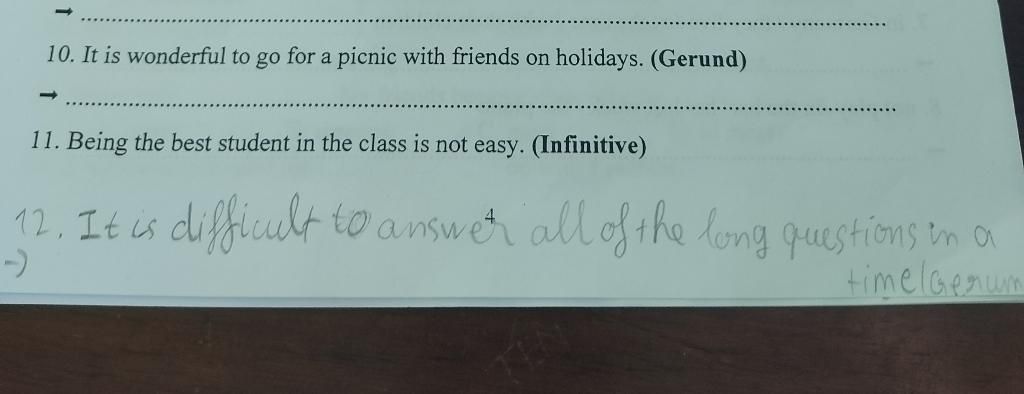 → ................................................................
10. It is wonderful to go for a picnic with friends on holidays. (Gerund)
→ ................................................................
11. Being the best student in the class is not easy. (Infinitive)
4
12. It is difficult to answer all of the long questions in a
→
time(Gerun